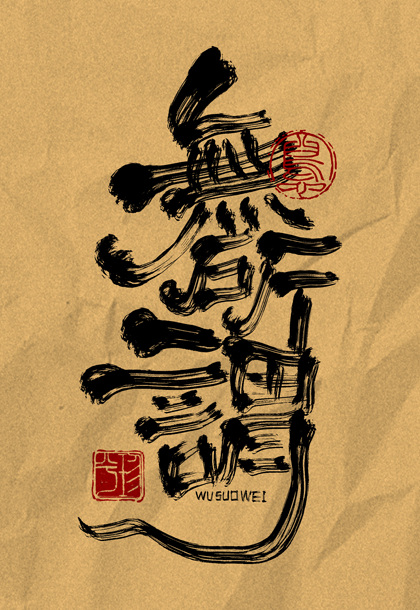 無所謂
WUSUOWEI